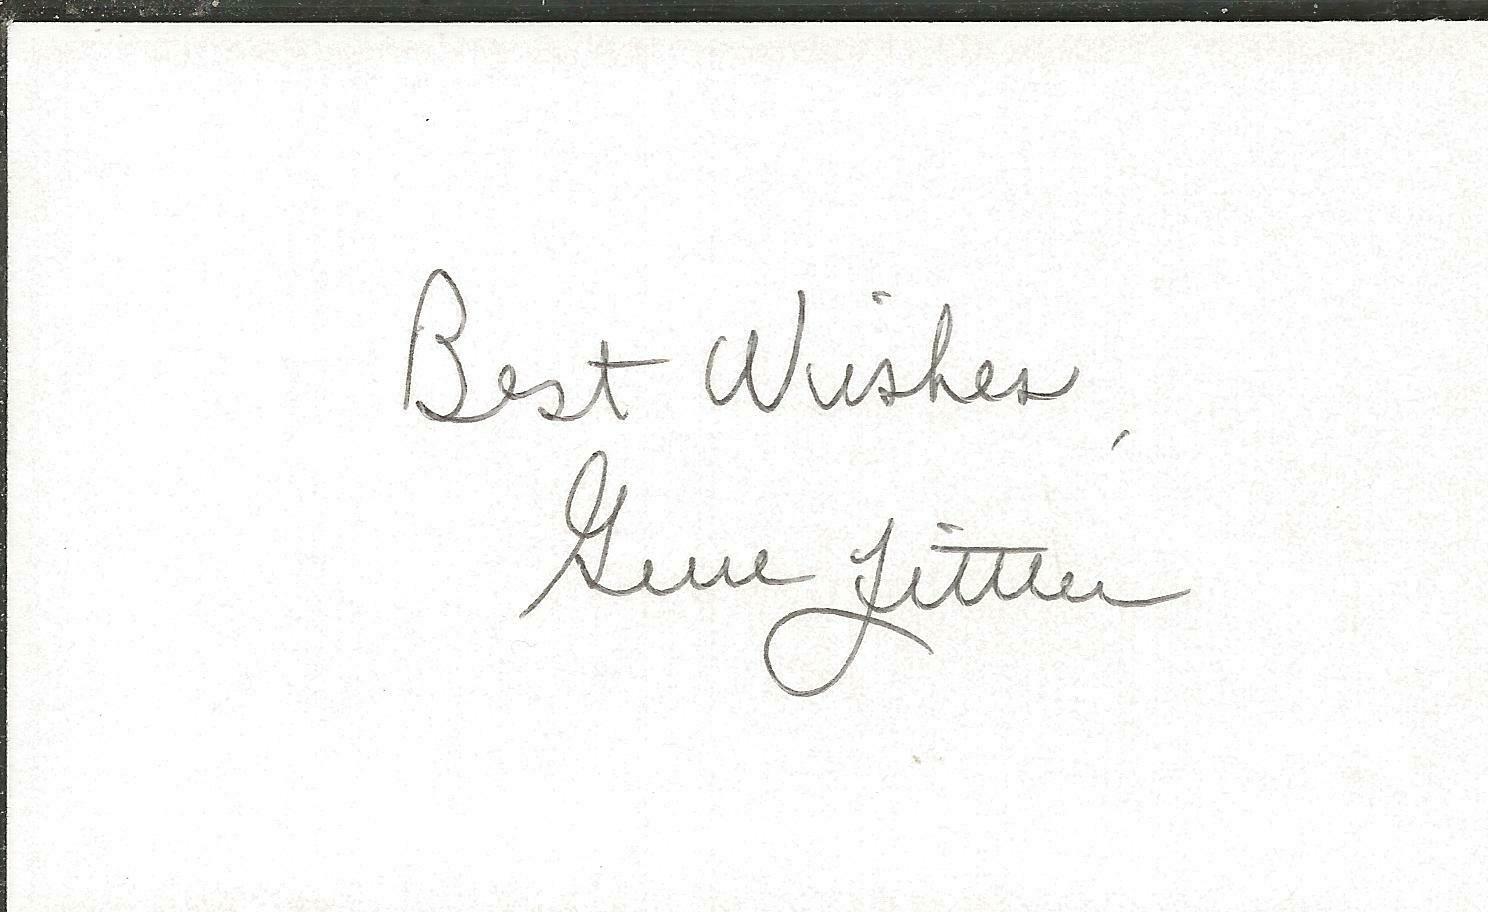 Best Wishes,
Gene Littler